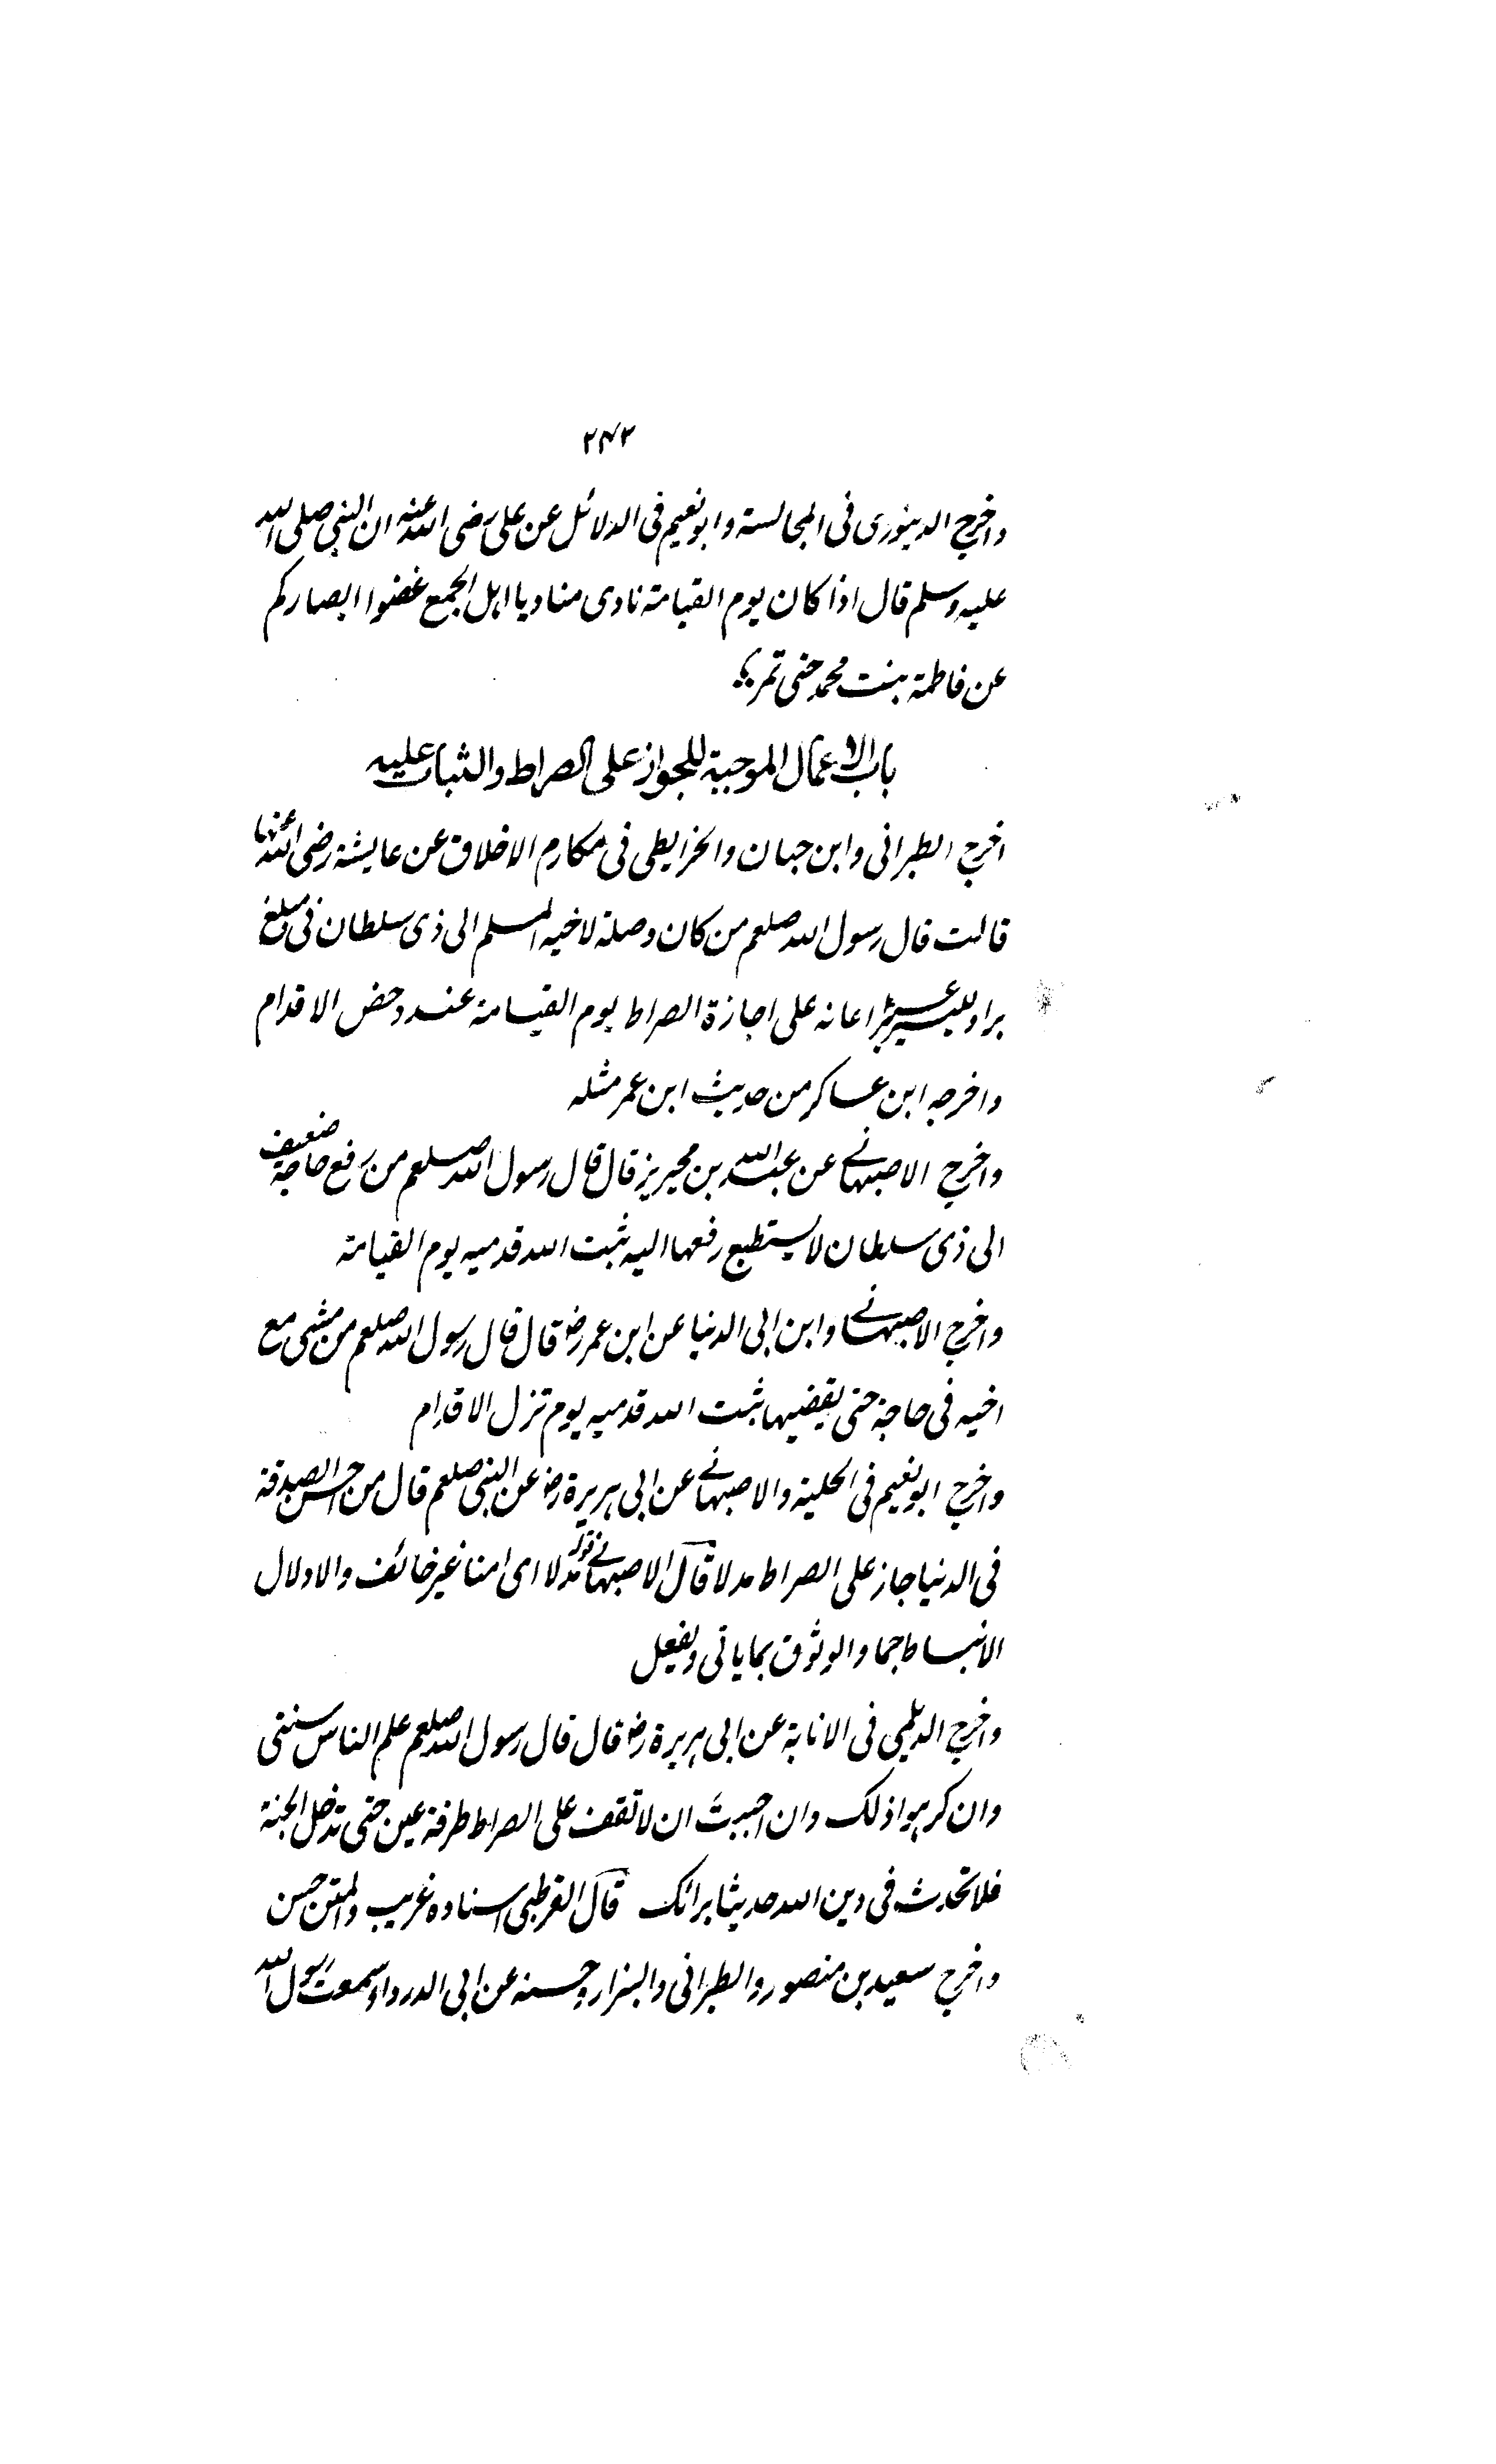 ۲۴۲
واخرج الدینوری فی المجالسة وابونعیم فی الدلائل عن علی رضی الله عنه ان النبی صلی الله
علیه وسلم قال اذا کان یوم القیامة نادی مناد یا اهل الجمع غضوا ابصارکم
عن فاطمة بنت محمد حتی تمر
باب الاعمال الموجبة للجواز علی الصراط والثبات علیه
اخرج الطبرانی وابن حبان والخرایطی فی مکارم الاخلاق عن عایشة رضی الله عنها
قالت قال رسول الله صلعم من کان وصلة لاخیه المسلم الی ذی سلطان فی مبلغ
بر او تیسیر عسیر اعانه علی اجازة الصراط یوم القیامة عند دحض الاقدام
واخرجه ابن عساکر من حدیث ابن عمر مثله
واخرج الاصبهانے عن عبد الله بن محیریز قال قال رسول الله صلعم من رفع حاجة ضعیف
الی ذی سلطان لا یستطیع رفعها الیه ثبت الله قدمیه یوم القیامة
واخرج الاصبهانے وابن ابی الدنیا عن ابن عمر رض قال قال رسول الله صلعم من مشی مع
اخیه فی حاجة حتی یقضیها ثبت الله قدمیه یوم تزل الاقدام
واخرج ابونعیم فی الحلیة والاصبهانے عن ابی هریرة رض عن النبی صلعم قال من احسن الصدقة
فی الدنیا جاز علی الصراط مدلا قال الاصبهانے قوله مدلا ای امنا غیر خائف والادلال
الانبساط جما والوثوق بما یاتی ویفعل
واخرج الدیلمی فی الانابة عن ابی هریرة رض قال قال رسول الله صلعم علم الناس سنتی
وان کرهوا ذلک وان احببتَ ان لا تقف علی الصراط طرفة عین حتی تدخل الجنة
فلا تحدث فی دین الله حدیثا برائک قال القرطبی اسناده غریب والمتن حسن
واخرج سعید بن منصور والطبرانی والبزار وحسنه عن ابی الدرداء سمعت رسول الله